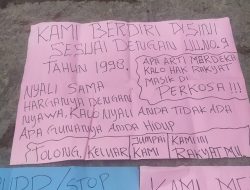 KAMI BERDIRI DISINI
SESUAI DENGAN UU.NO.9
TAHUN 1998.
APA ARTI MERDEKA
KALO HAK RAKYAT
MASIK DI
PERKOSA!!!
NYALI SAMA
HARGANYA DENGAN
NYAWA, KALO NYALI ANDA TIDAK ADA
APA GUNANYA ANDA HIDUP
TOLONG, KELUAR
JUMPAI KAMI INI
KAMI RAKYAT MU
/STOP
KAMI